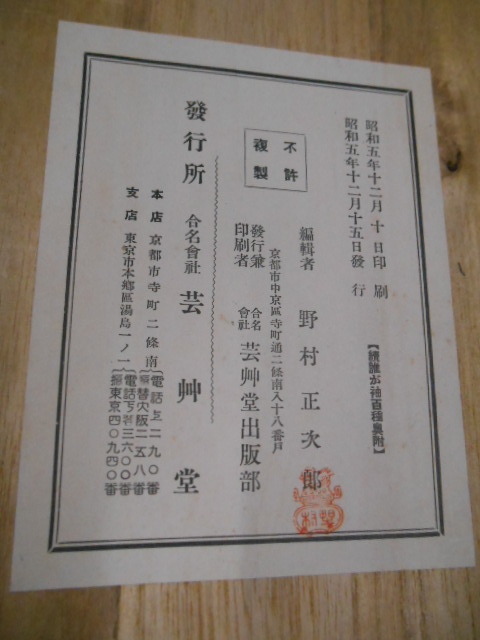 昭和五年十二月十日印刷
昭和五年十二月十五日發行
【續誰が袖百種奥附】
不許
複製
編輯者 野村正次郎
京都市中京區寺町通二條南入十八番戸
發行兼
印刷者 合名
會社 芸艸堂出版部
發行所 合名會社 芸艸堂
本店 京都市寺町二條南
二九〇番
振替大阪二五八番
支店 東京市本鄕區湯島一ノ一
三六〇〇番
振東京四〇九四〇番